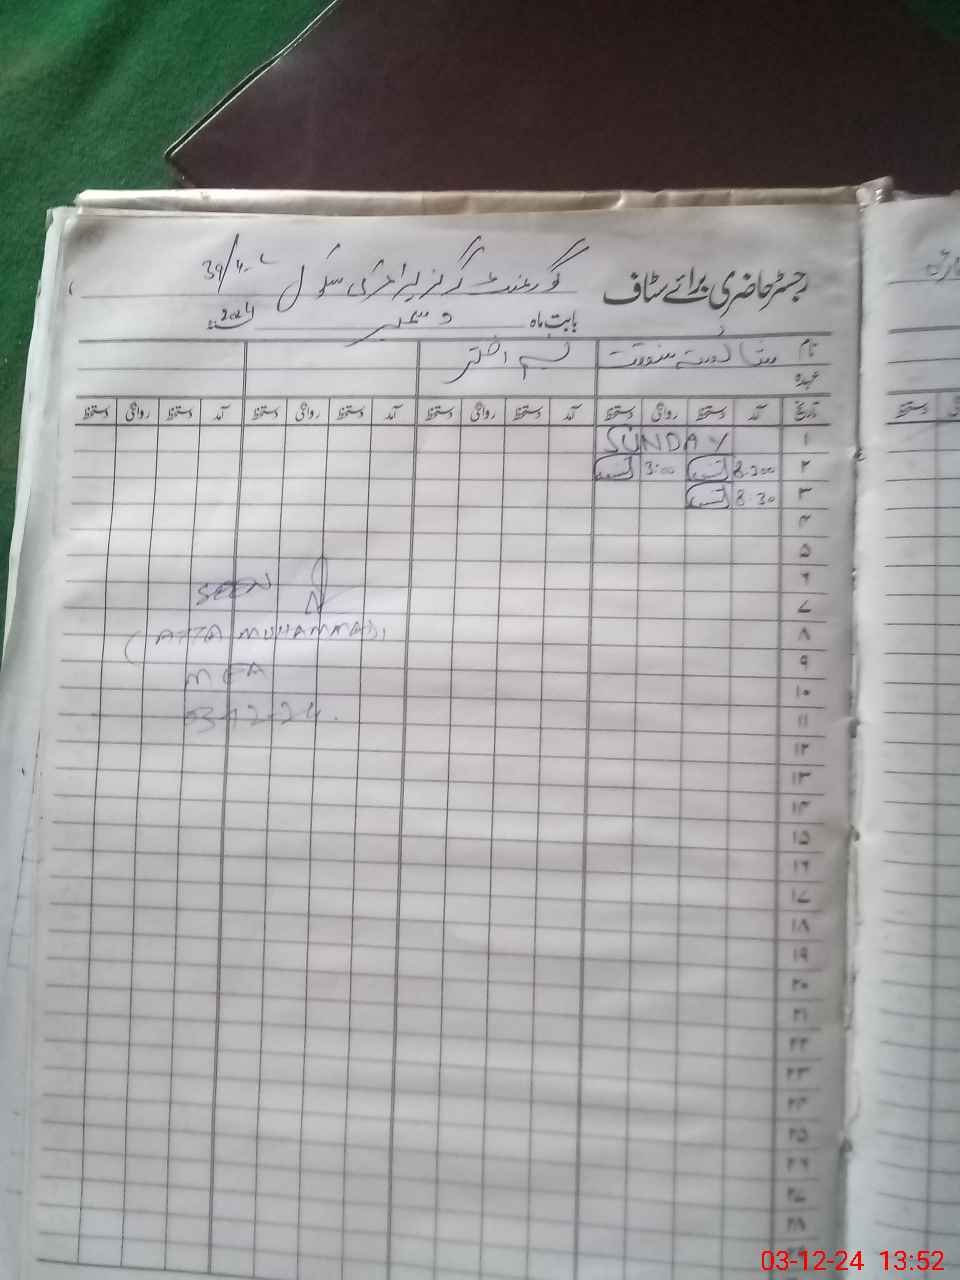 رجسٹر حاضری برائے سٹاف گورنمنٹ گرلز پرائمری سکول 39/4-L
بابت ماہ دسمبر 2024ء
نام
نسیم اختر
عہدہ
تاریخ آمد دستخط روانگی دستخط آمد دستخط روانگی دستخط آمد دستخط روانگی دستخط آمد دستخط روانگی دستخط
۱ SUNDAY
۲ 8:300 3:00
۳ 8:30
۴
۵
۶
۷
۸
۹
۱۰
۱۱
۱۲
۱۳
۱۴
۱۵
۱۶
۱۷
۱۸
۱۹
۲۰
۲۱
۲۲
۲۳
۲۴
۲۵
۲۶
۲۷
۲۸
SEEN
(ATTA MUHAMMAD)
MEA
3-12-24.
دستخط
03-12-24 13:52